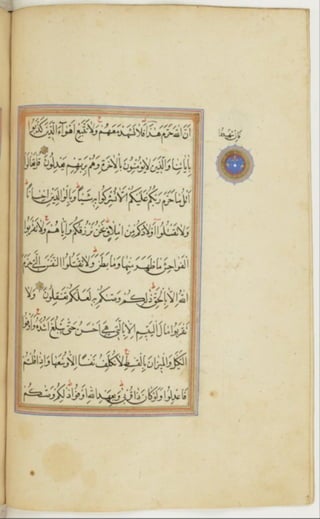 أن الله حرم هذا فلا تشهد معهم ولا تتبع أهواء الذين كذبوا
بآياتنا والذين لا يؤمنون بالآخرة وهم بربهم يعدلون قل تعالوا
أتل ما حرم ربكم عليكم ألا تشركوا به شيئا وبالوالدين إحسانا
ولا تقتلوا أولادكم من إملاق نحن نرزقكم وإياهم ولا تقربوا
الفواحش ما ظهر منها وما بطن ولا تقتلوا النفس التي حرم
الله إلا بالحق ذلكم وصىكم به لعلكم تعقلون ولا
تقربوا مال اليتيم إلا بالتي هي أحسن حتى يبلغ أشده وأوفوا
الكيل والميزان بالقسط لا نكلف نفسا إلا وسعها وإذا قلتم
فاعدلوا ولو كان ذا قربى وبعهد الله أوفوا ذلكم وصىكم